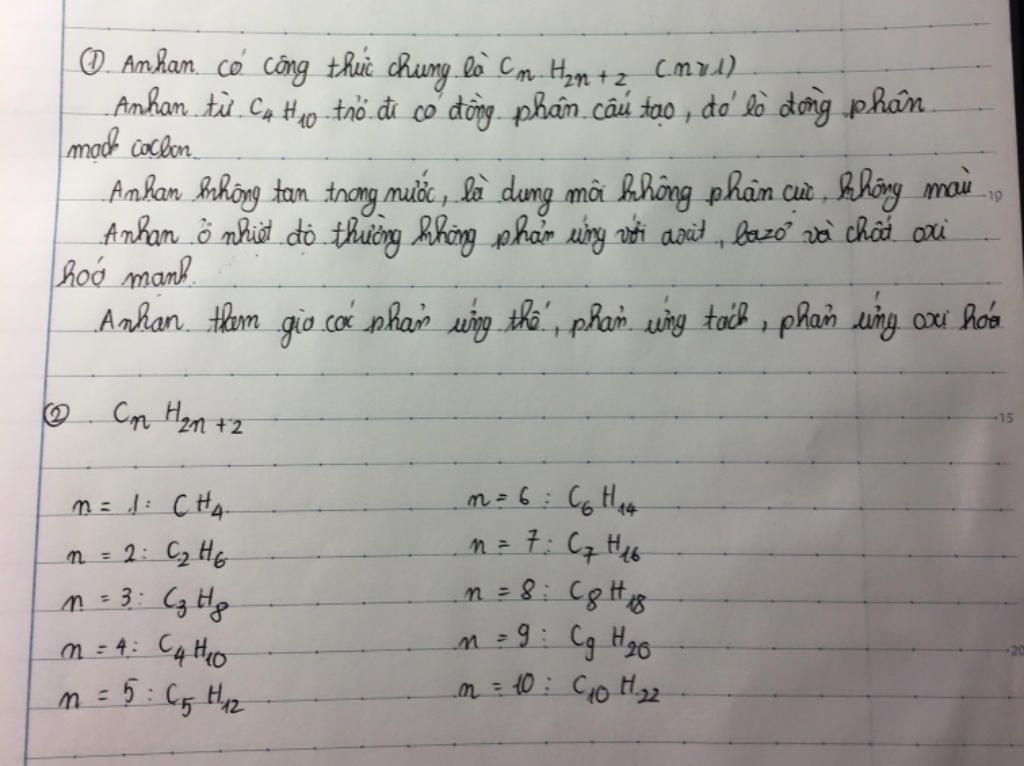 ① Ankan có công thức chung là CnH2n+2 (n≥1)
Ankan từ C4H10 trở đi có đồng phân cấu tạo, đó là đồng phân
mạch cacbon.
Ankan không tan trong nước, là dung môi không phân cực, không màu
Ankan ở nhiệt độ thường không phản ứng với axit, bazơ và chất oxi
hoá mạnh.
Ankan tham gia các phản ứng thế, phản ứng tách, phản ứng oxi hóa
10
② CnH2n+2
15
n = 1: CH4
n = 2: C2H6
n = 3: C3H8
n = 4: C4H10
n = 5: C5H12
n = 6: C6H14
n = 7: C7H16
n = 8: C8H18
n = 9: C9H20
n = 10: C10H22
20